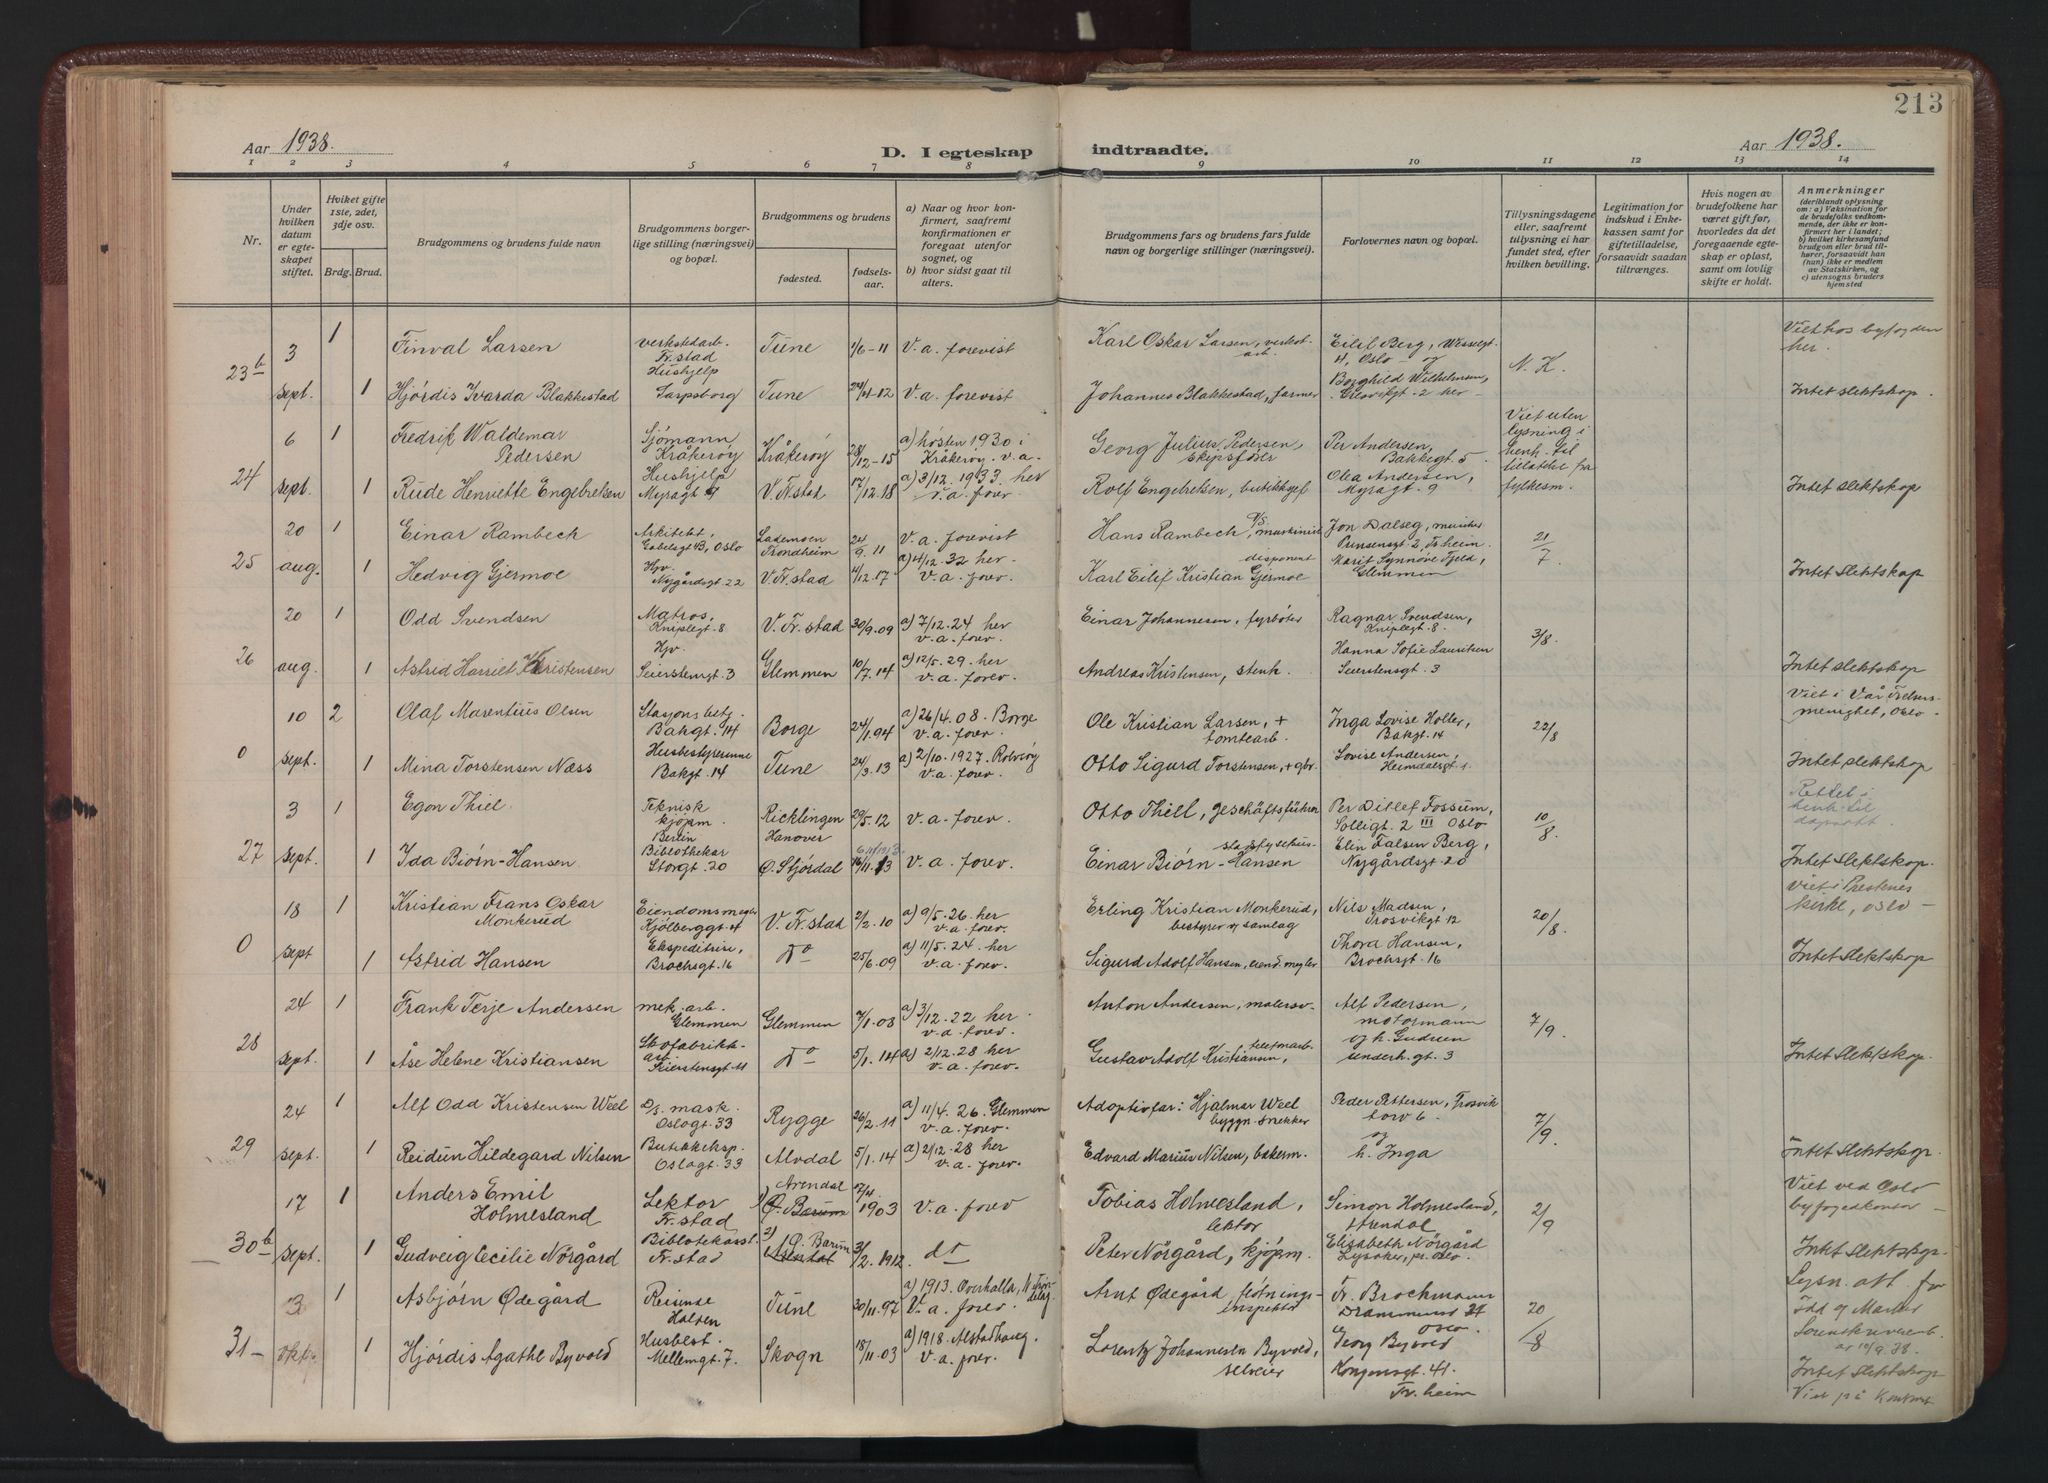 213
Aar 1938.
D. I egteskap indtraadte.
Aar 1938.
1 2 3 4 5 6 7 8 9 10 11 12 13 14
Nr.
Under hvilken datum er egteskapet stiftet.
Hvilket gifte 1ste, 2det, 3dje osv.
Brdg. Brud.
Brudgommens og brudens fulde navn
Brudgommens borgerlige stilling (næringsvei) og bopæl.
Brudgommens og brudens
fødested.
fødselsaar.
a) Naar og hvor konfirmert, saafremt konfirmationen er foregaat utenfor sognet, og
b) hvor sidst gaat til alters.
Brudgommens fars og brudens fars fulde navn og borgerlige stillinger (næringsvei).
Forlovernes navn og bopæl.
Tillysningsdagene eller, saafremt tillysning ei har fundet sted, efter hvilken bevilling.
Legitimation for indskud i Enkekassen samt for giftetilladelse, forsaavidt saadan tiltrænges.
Hvis nogen av brudefolkene har været gift før, hvorledes da det foregaaende egteskap er opløst, samt om lovlig skifte er holdt.
Anmerkninger
(deriblandt oplysning om: a) Vaksination for de brudefolks vedkommende, der ikke er konfirmert her i landet; b) hvilket kirkesamfund brudgom eller brud tilhører, forsaavidt han (hun) ikke er medlem av Statskirken, og c) utensogns bruders hjemsted
23b 3 sept. 1 Finval Larsen verkstedarb. Fr.stad Tune 1/6-11 V.a. forevist Karl Oskar Larsen, verkst.arb. Eilif Berg, Wesselgt. 4, Oslo og N.K. Viet hos byfogden her.
1 Hjørdis Ivarda Blakkestad Hushjelp Sarpsborg Tune 24/4-12 V.a. forevist Johannes Blakkestad, farmer Borghild Wilhelmsen, 2 her Intet slektskap.
24 6 sept. 1 Fredrik Waldemar Pedersen Sjømann, Kråkerøy Kråkerøy 28/12-15 a) høsten 1930 i Kråkerøy. v.a. Georg Julius Pedersen, skipsfører Per Andersen, Bakkegt. 5 Viet uten lysning i henh. til tillatelse fra fylkesm.
1 Rude Henriette Engebretsen Hushjelp Myragt. 9 V. Fr.stad 17/12.18 a) 3/12. 1933 her v.a. forev. Rolf Engebretsen, butikksjef Olea Andersen, Myragt. 9 Intet slektskap
25 20 aug. 1 Einar Rambech Arkitekt, Gabelsgt. 4B, Oslo Lademoen Trondheim 24/9.11 V.a. forevist Hans Rambech, maskinist Jon Dalseg, musiker Prinsensgt. 2, Tr.heim. 21/7
1 Hedvig Gjermoe Hjv. Nygårdsgt. 22 V. Fr.stad 4/12.17 a) 4/12. 32 her v.a. forev. Karl Eilif Kristian Gjermoe disponent Marit Synnøve Fjeld, Glemmen Intet slektskap
26 20 aug. 1 Odd Svendsen Matros, Kniplegt. 8 V. Fr.stad 30/9.09 a) 7/12. 24 her v.a. forev. Einar Johannesen, fyrbøter Ragnar Svendsen, Kniplegt. 8. 3/8.
1 Astrid Harriet Kristensen Hjv. Seierstensgt. 3 Glemmen 10/7.14 a) 12/5. 29. her v.a. forev. Andreas Kristensen, stenh. Hanna Sofie Lauritsen Seierstensgt. 3 Intet slektskap
0 10 sept. 2 Olaf Marentius Olsen Stasjonsbetj. Bakgt. 14 Borge 24/1.94 a) 26/4. 08. Borge v.a. forev. Ole Kristian Larsen, + tomtearb. Inga Lovise Holler, Bakgt. 14 22/8 Viet i Vår Frelsers menighet, Oslo.
1 Mina Torstensen Næss Husbestyrerinne Bakgt. 14 Tune 24/3.13 a) 2/10. 1927. Rolvsøy v.a. forev. Otto Sigurd Torstensen, + gbr. Lovise Andersen, Heimdalsgt. Intet slektskap
27 3 sept. 1 Egon Thiel Teknisk kjøpm. Berlin Ricklingen Hanover 29/5.12 V.a. forev. Otto Thiell, geschäftsführer Per Ditlef Fossum, Solligt. 2 III Oslo 10/8. Rettet i henh. til dåpsatt.
1 Ida Biørn-Hansen Bibliothekar Storgt. 20 Ø. Stjørdal 16/11.13 V.a. forev. Einar Biørn-Hansen Elin Falsen Berg, Nygårdsgt. 20 Intet slektskap.
0 18 sept 1 Kristian Frans Oskar Monkerud Eiendomsmegler Kjølberggt. 4 V. Fr.stad 2/2.10 a) 9/5. 26. her v.a. forev. Erling Kristian Monkerud, bestyrer og samlag Nils Madsen, Trosvikgt. 12 20/8. Viet i Prestenes kirke, Oslo
1 Astrid Hansen Ekspeditrise, Brochsgt. 16 Do 25/6.09 a) 11/5. 24. her v.a. forev. Sigurd Adolf Hansen, eiend. megler Thora Hansen, Brochsgt. 16 Intet slektskap
28 24 sept. 1 Frank Terje Andersen mek. arb. Glemmen Glemmen 7/1.08 a) 3/12. 22 her. v.a. forev. Anton Andersen, malersv. Alf Pedersen, motormann og h. Gudrun underh.gt. 3 7/9.
1 Åse Helene Kristiansen Skofabrikkarb. Seierstensgt. 11 Do 5/1.14 a) 2/12. 28 her v.a. forev. Gustav Adolf Kristiansen, telefonarb. Intet slektskap.
29 24 sept. 1 Alf Odd Kristensen Weel D/s. mask. Oslogt. 33 Rygge 26/2.11 a) 11/4. 26. Glemmen v.a. forev. Adoptivfar: Hjalmar Weel byggn. snekker Peder Pettersen, Trosvik torv 6 og h. Inga 7/9.
1 Reidun Hildegard Nilsen Butikkeksp. Oslogt. 33 Alvdal 5/1.14 a) 2/12. 28 her v.a. forev. Edvard Marius Nilsen, bakerm. Intet slektskap.
30b 17 sept. 1 Anders Emil Holmesland Lektor Fr.stad 1) Arendal Ø. Bærum 17/4. 1903 V.a. forev Tobias Holmesland, lektor Simon Holmesland, Arendal 2/9 Viet ved Oslo byfogedkontor
1 Gudveig Cecilie Nörgård Bibliotekarst. Fr.stad 2) Ø. Bærum Arendal 3/2. 1912 do Peter Nörgård, kjøpm. Elisabeth Nörgård Lysaker, pr. Oslo Intet slektskap.
31 3 okt. 1 Asbjörn Ødegård Reisende Halden Tune 30/11.97 a) 1913. Overhalla, N. Trøndelag V.a. forev. Arnt Ødegård, fløtningsinspektør Fr. Brochmann Drammensv 21 Oslo. 20/8 Lysn. att. fra Idd og Marker Sorenskriveremb. av 10/9. 38.
1 Hjørdis Agathe Byvold Husbest. Mellemgt. 7. Skogn 18/11.03 a) 1918. Alstadhaug. v.a. forev. Lorentz Johannesen Byvold, selveier Georg Byvold Kongensgt. 41. Tr.heim Intet slektskap Viet på kontoret